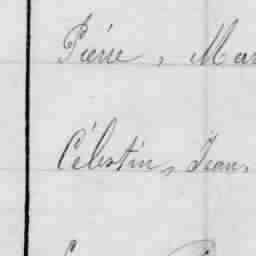 Pierre, Mar
Célestin, Jean,